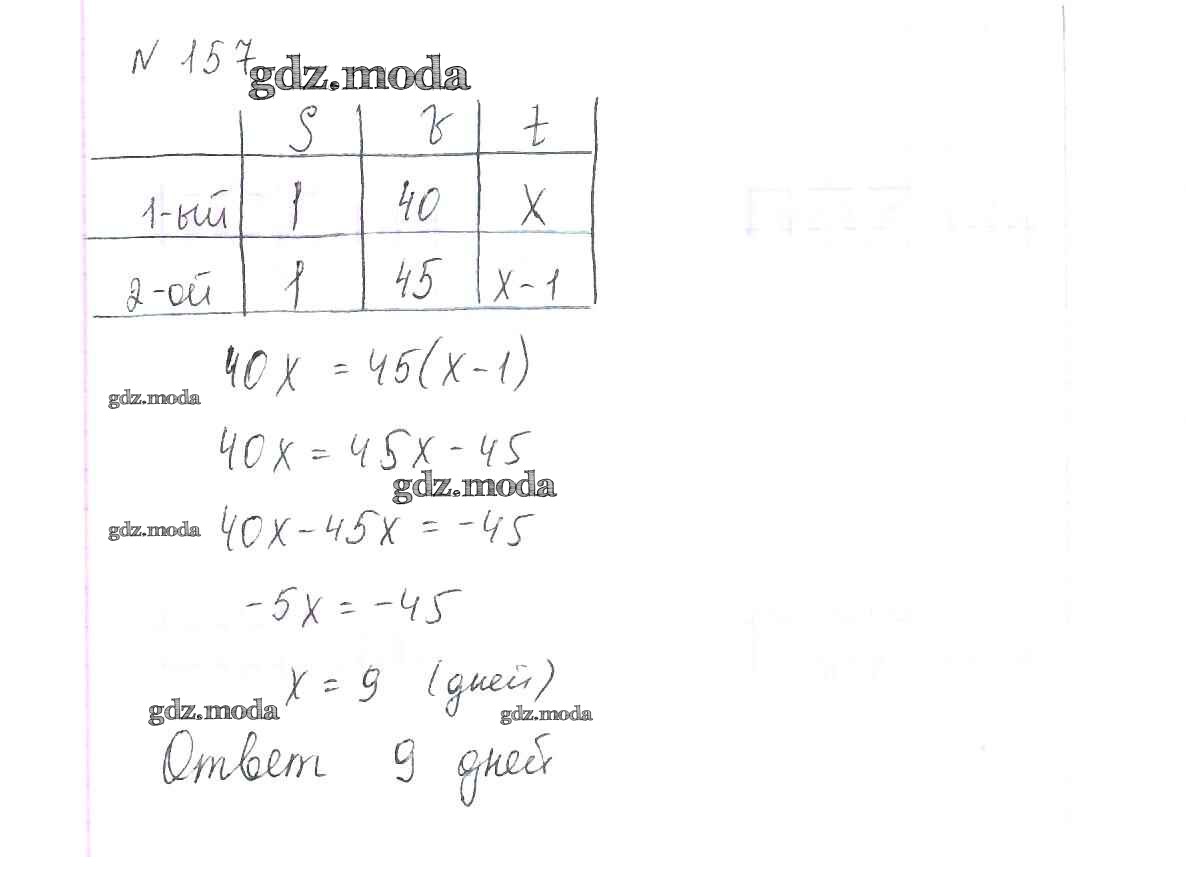 N 157
gdz.moda
S v t
1-ый 1 40 x
2-ой 1 45 x-1
40x = 45(x-1)
gdz.moda
40x = 45x - 45
gdz.moda
gdz.moda 40x - 45x = -45
-5x = -45
x = 9 (дней)
gdz.moda gdz.moda
Ответ 9 дней